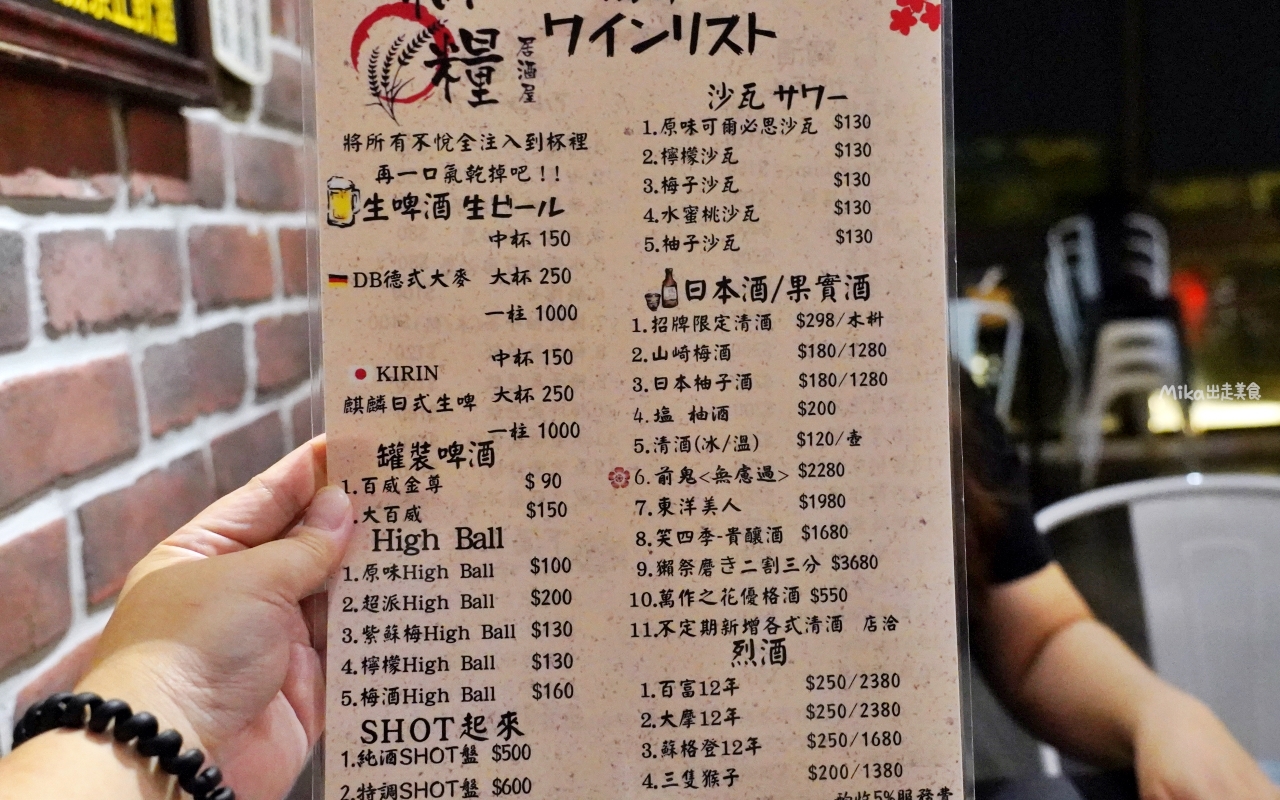 糧
居酒屋
ワインリスト
將所有不悅全注入到杯裡
再一口氣乾掉吧！！
生啤酒 生ビール
中杯 150
DB德式大麥 大杯 250
一柱 1000
中杯 150
KIRIN
麒麟日式生啤 大杯 250
一柱 1000
罐裝啤酒
1.百威金尊 $ 90
.大百威 $150
High Ball
1.原味High Ball $100
2.超派High Ball $200
3.紫蘇梅High Ball $130
4.檸檬High Ball $130
5.梅酒High Ball $160
SHOT起來
1.純酒SHOT盤 $500
2.特調SHOT盤 $600
沙瓦 サワー
1.原味可爾必思沙瓦 $130
2.檸檬沙瓦 $130
3.梅子沙瓦 $130
4.水蜜桃沙瓦 $130
5.柚子沙瓦 $130
日本酒/果實酒
1.招牌限定清酒 $298/木枡
2.山崎梅酒 $180/1280
3.日本柚子酒 $180/1280
4.塩 柚酒 $200
5.清酒(冰/溫) $120/壺
6.前鬼<無慮過> $2280
7.東洋美人 $1980
8.笑四季-貴釀酒 $1680
9.獺祭磨き二割三分 $3680
10.萬作之花優格酒 $550
11.不定期新增各式清酒 店洽
烈酒
1.百富12年 $250/2380
2.大摩12年 $250/2380
3.蘇格登12年 $250/1680
4.三隻猴子 $200/1380
酌收5%服務費
Mika出走美食